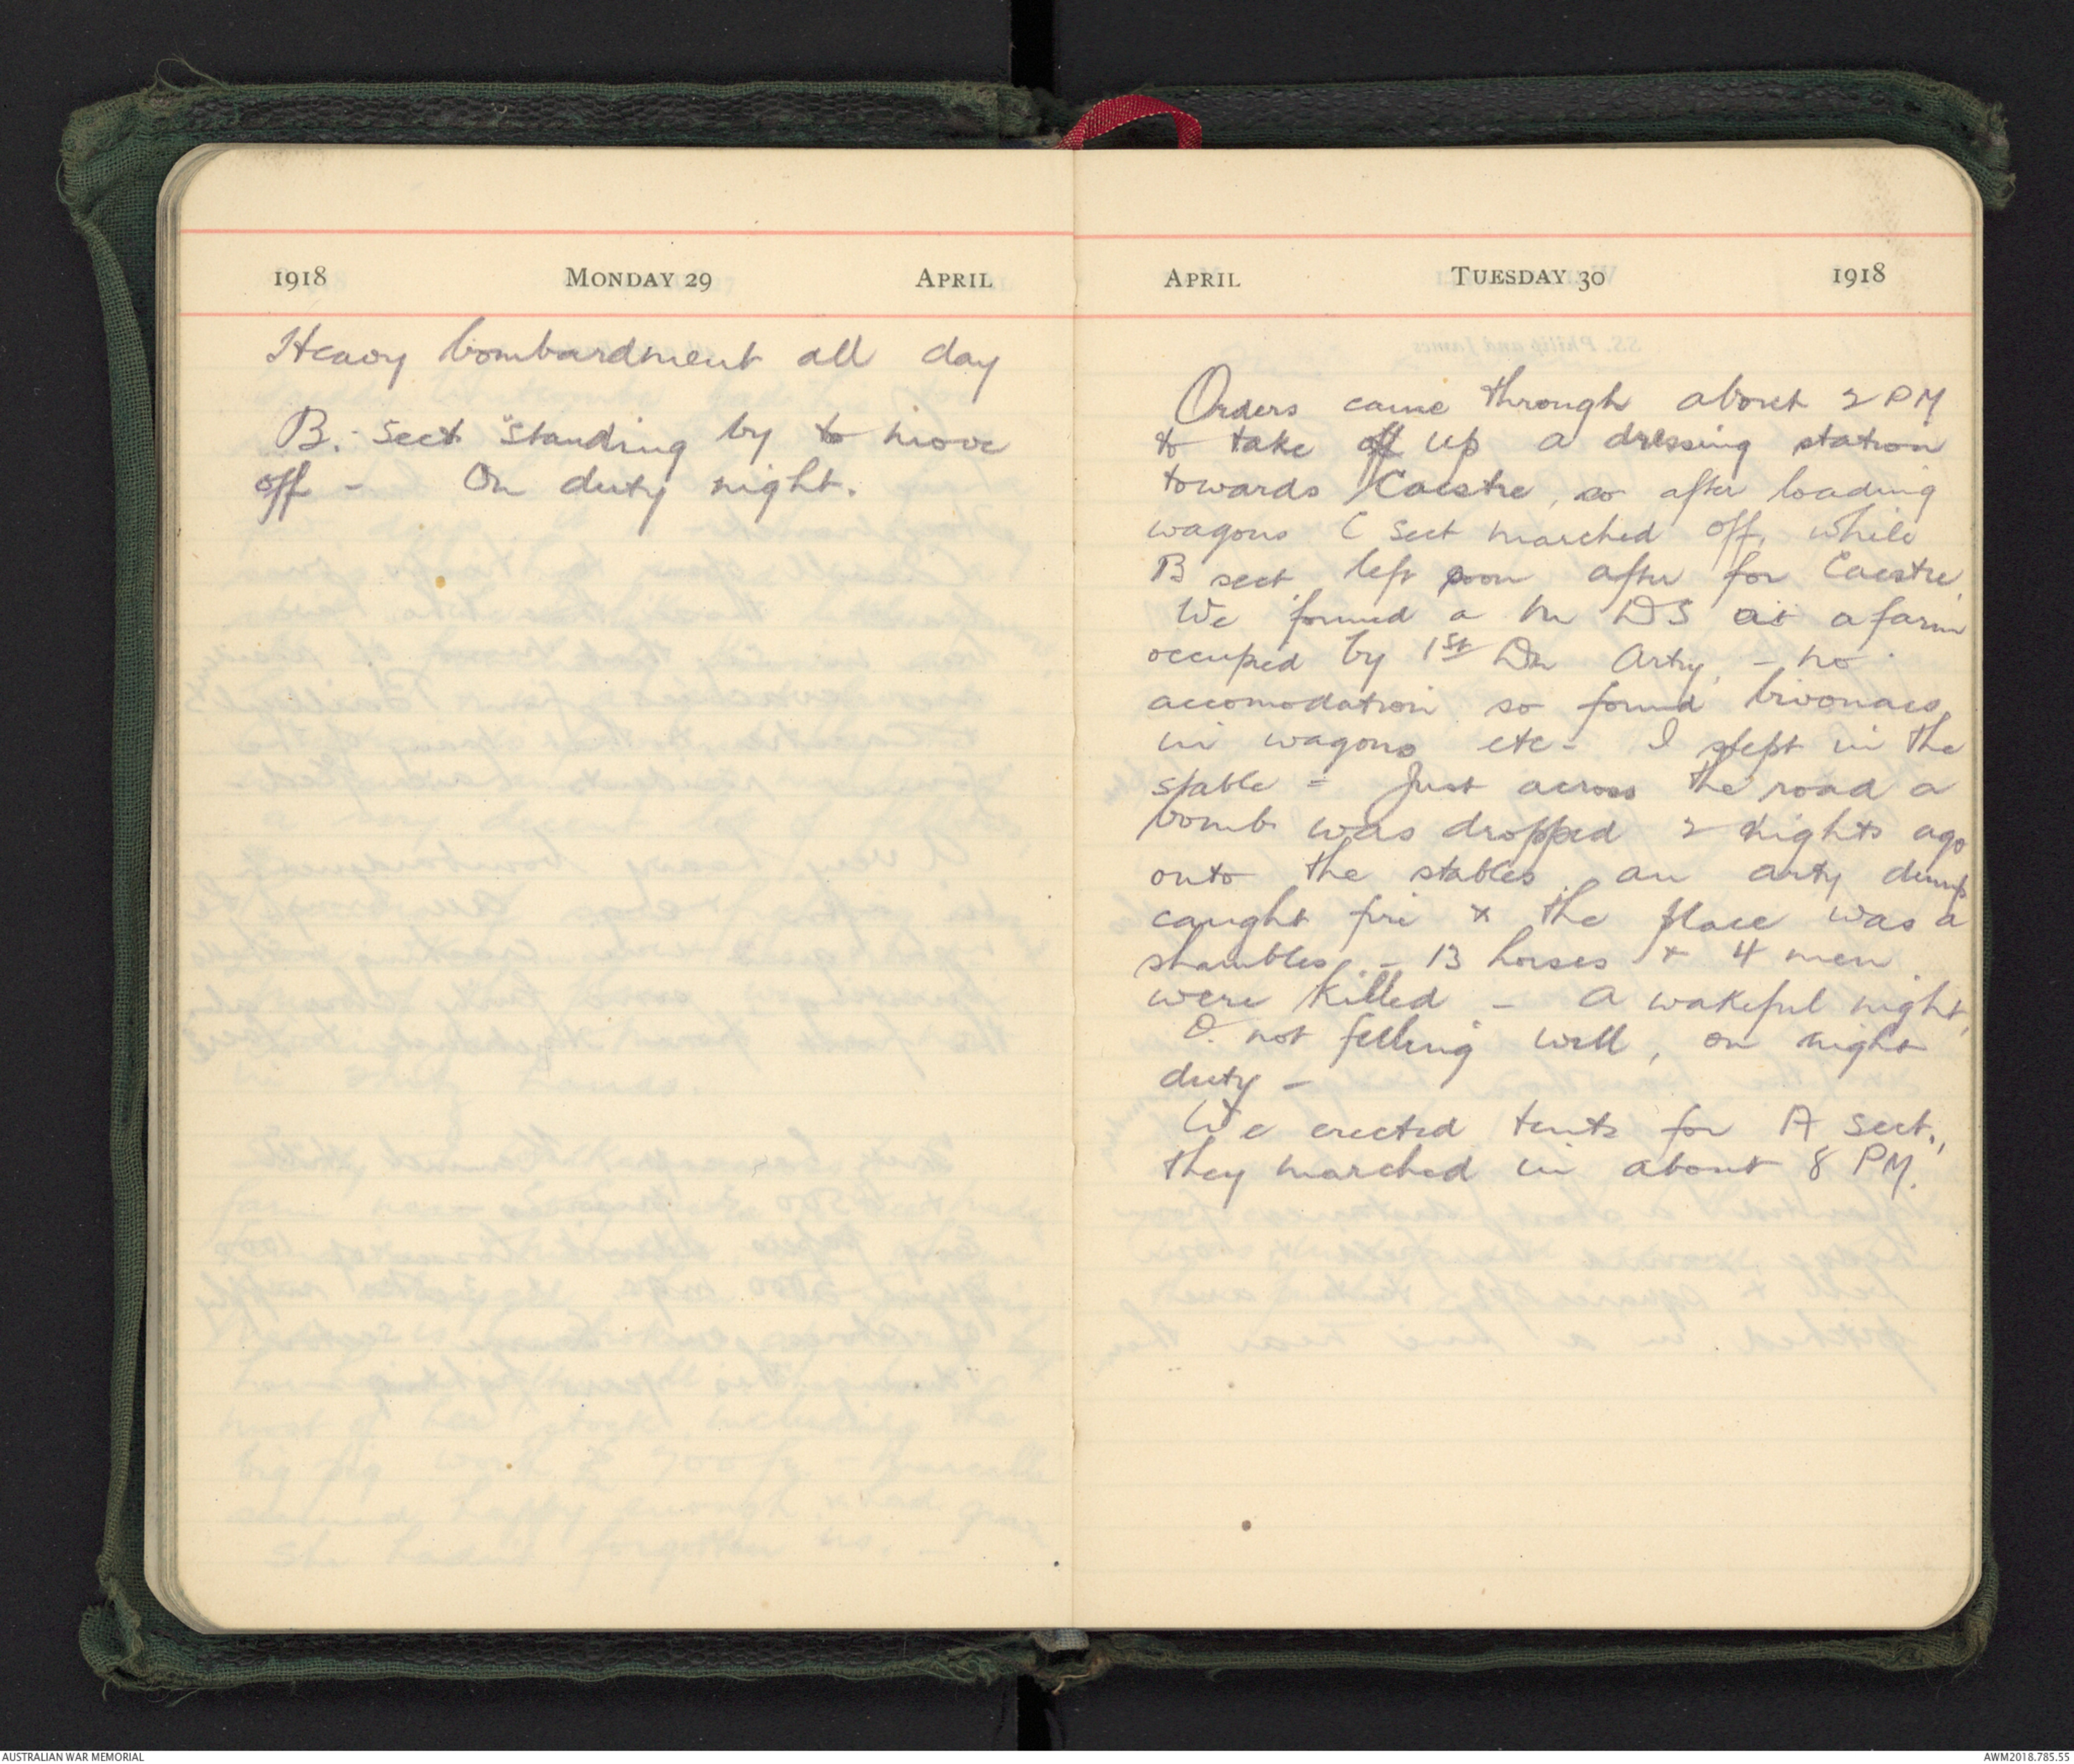 1918 MONDAY 29 APRIL
Heavy bombardment all day
B. Sect "standing by to move
off - On duty night.
APRIL TUESDAY 30 1918
Orders came through about 2 PM
to take off up a dressing station
towards Caestre, so after loading
wagons C sect marched off, while
B sect left soon after for Caestre.
We formed a M DS at a farm
occupied by 1st Dn Arty, - no
accomodation so found bivouacs
in wagons etc - I slept in the
stable = Just across the road a
bomb was dropped 2 nights ago
onto the stables, an arty dump
caught fire & the place was a
shambles, - 13 horses & 4 men
were killed - A wakeful night,
not felling well, on night
duty -
We erected tents for A sect.,
they marched in about 8 PM.
AUSTRALIAN WAR MEMORIAL
AWM2018.785.55